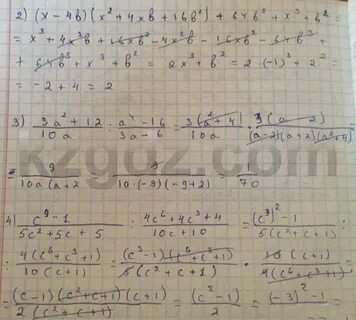 2) (x-4b)(x²+4xb+16b²)+64b³+x³+b²=
= x³+4x²b+16xb²-4x²b-16xb²-64b³+
+ 64b³+x³+b² = 2x³+b² = 2·(-1)³+2²=
= -2+4=2
3) (3a²+12)/(10a) : (a⁴-16)/(3a-6) = 3(a²+4)/(10a) · 3(a-2)/((a-2)(a+2)(a²+4))
= 9/(10a(a+2 = 9/(10·(-9)(-9+2)) = 1/70
4) (c⁹-1)/(5c²+5c+5) : (4c⁶+4c³+4)/(10c+10) = ((c³)³-1)/(5(c²+c+1)
: 4(c⁶+c³+1)/(10(c+1)) = (c³-1)(c⁶+c³+1)/(5(c²+c+1)) · 10(c+1)/(4(c⁶+c³+1)
= (c-1)(c²+c+1)(c+1)/(2(c²+c+1)) = (c²-1)/2 = ((-3)²-1)/2
kzgdz.com